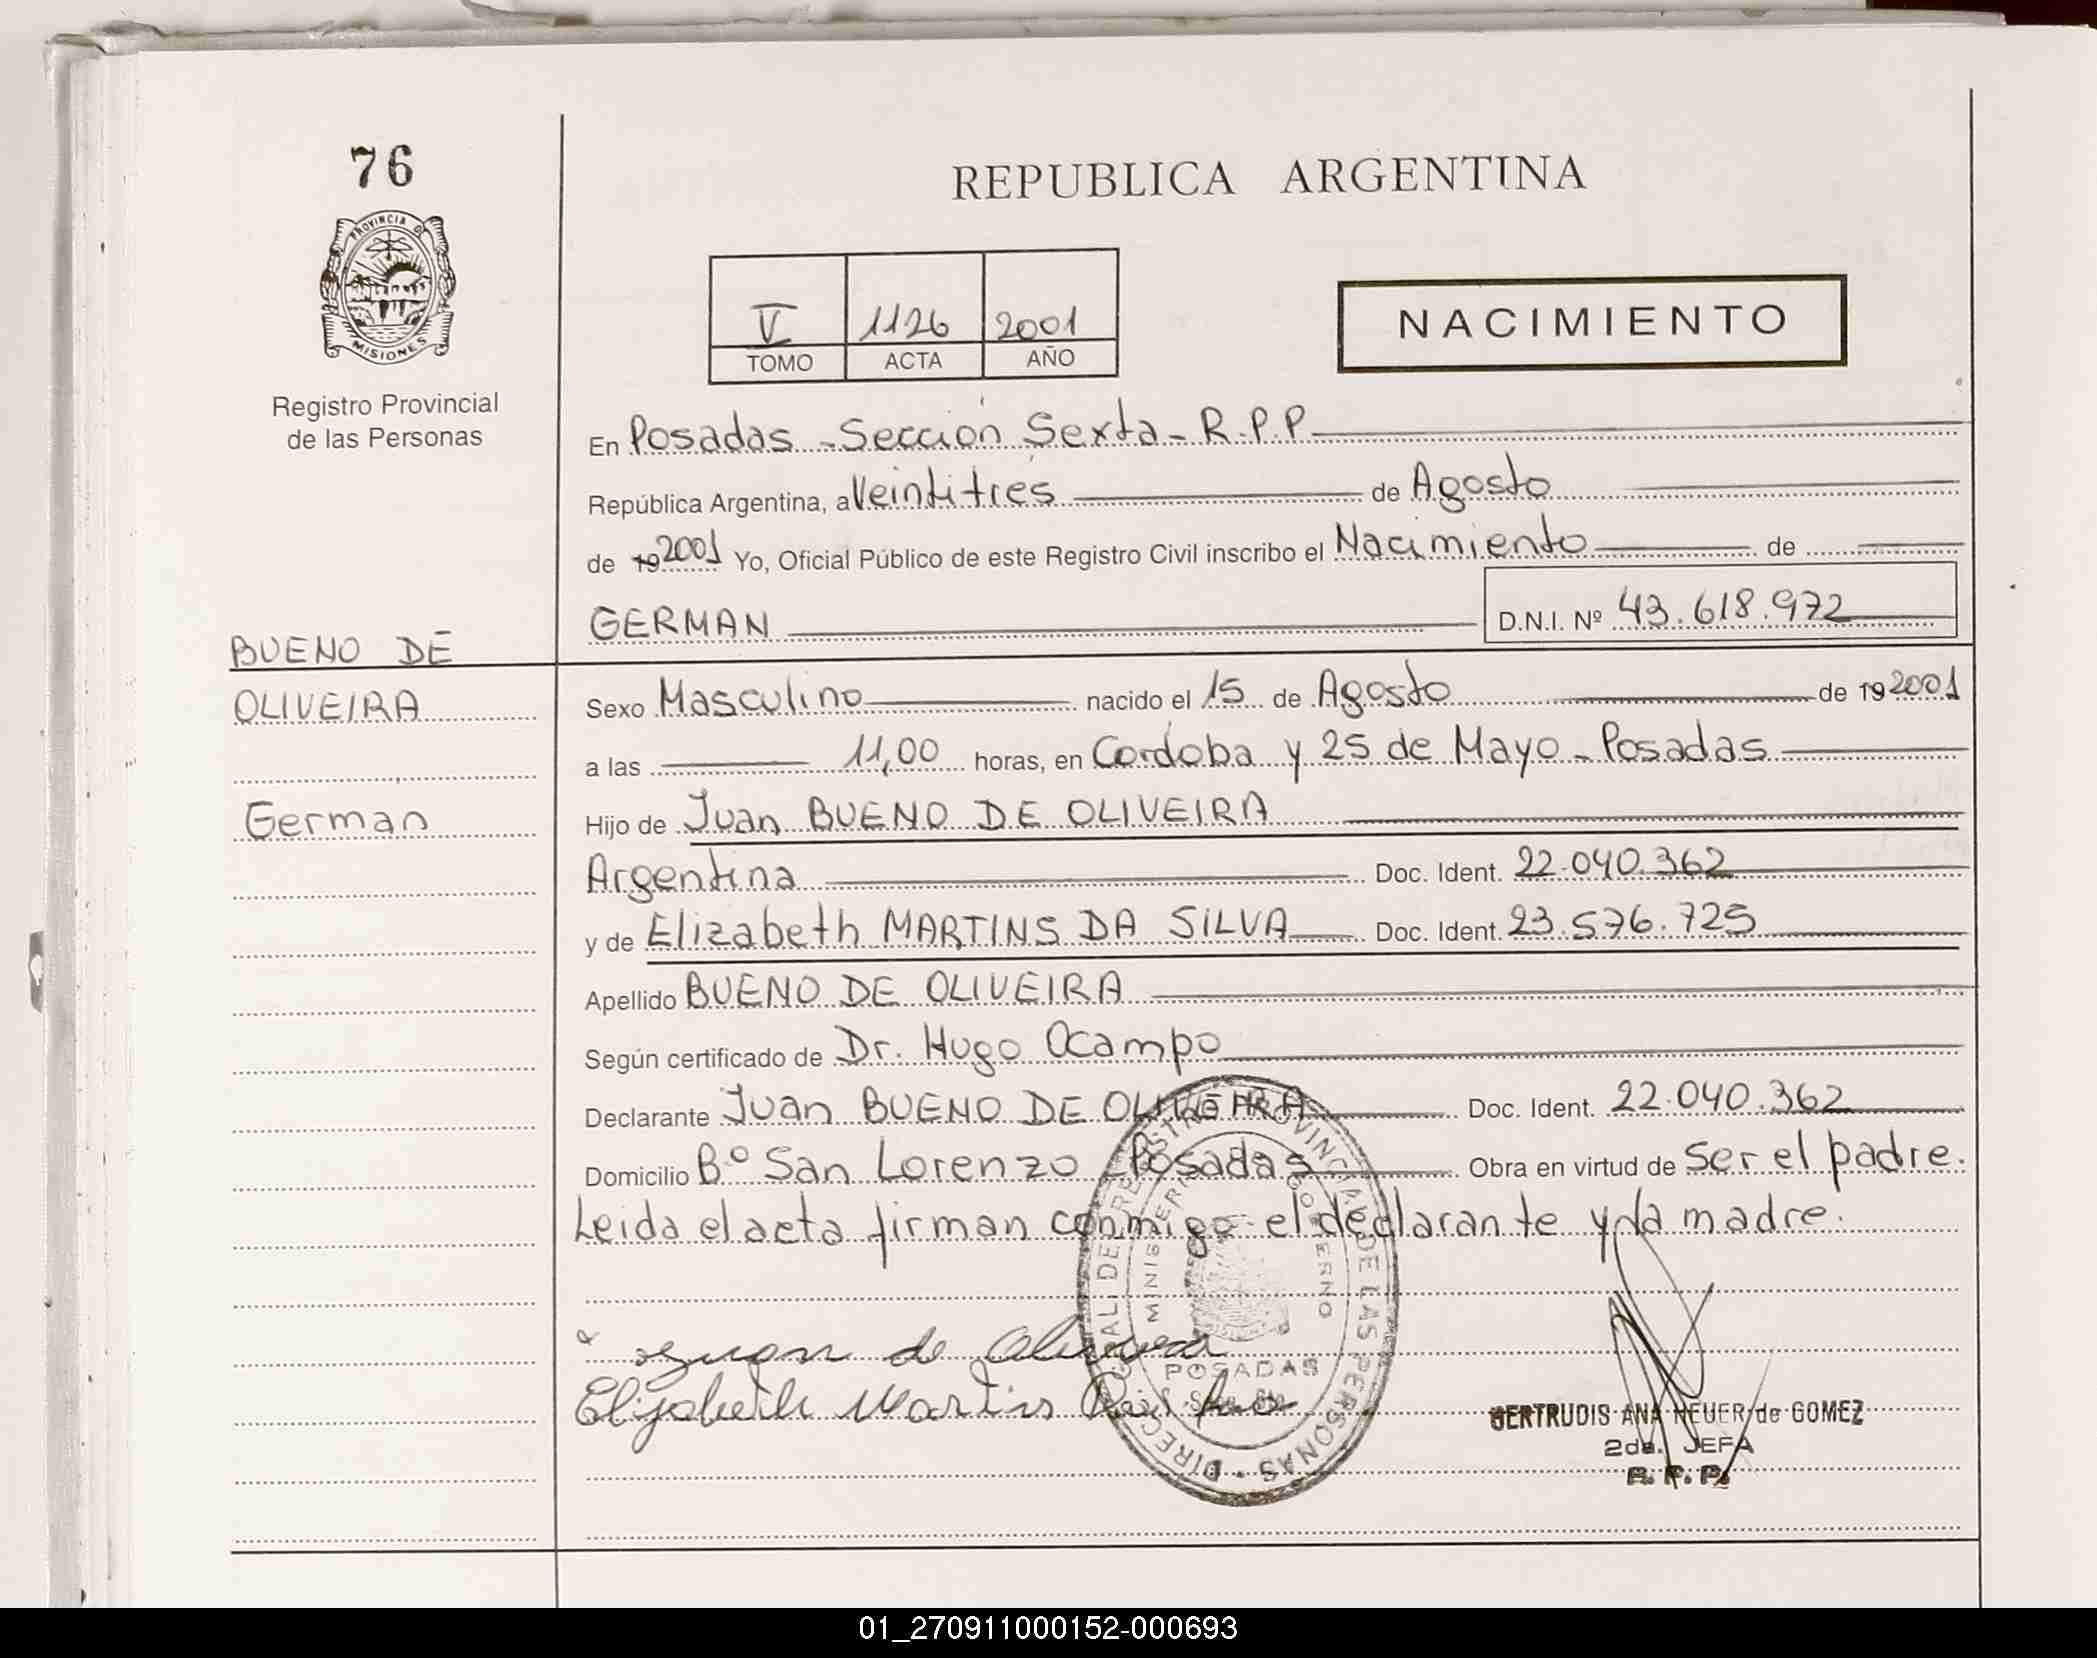 76
PROVINCIA D
MISIONES
Registro Provincial
de las Personas
REPUBLICA ARGENTINA
V 1126 2001
TOMO ACTA AÑO
NACIMIENTO
En Posadas - Sección Sexta - R.P.P.
República Argentina, a Veintitrés de Agosto
de 19 2001 Yo, Oficial Público de este Registro Civil inscribo el Nacimiento de
GERMAN D.N.I. Nº 43.618.972
BUENO DE
OLIVEIRA
German
Sexo Masculino nacido el 15 de Agosto de 19 2001
a las 11,00 horas, en Cordoba y 25 de Mayo - Posadas
Hijo de Juan BUENO DE OLIVEIRA
Argentina Doc. Ident. 22.040.362
y de Elizabeth MARTINS DA SILVA Doc. Ident. 23.576.725
Apellido BUENO DE OLIVEIRA
Según certificado de Dr. Hugo Ocampo
Declarante Juan BUENO DE OLIVEIRA Doc. Ident. 22.040.362
Domicilio Bº San Lorenzo Posadas Obra en virtud de ser el padre.
Leida el acta firman conmigo el declarante y la madre.
DE LAS PERSONAS
MINISTERIO GOBIERNO
POSADAS
de Oliveira
Elizabeth Martins
GERTRUDIS ANA HEUER de GOMEZ
2da. JEFA
R. P. P.
01_270911000152-000693